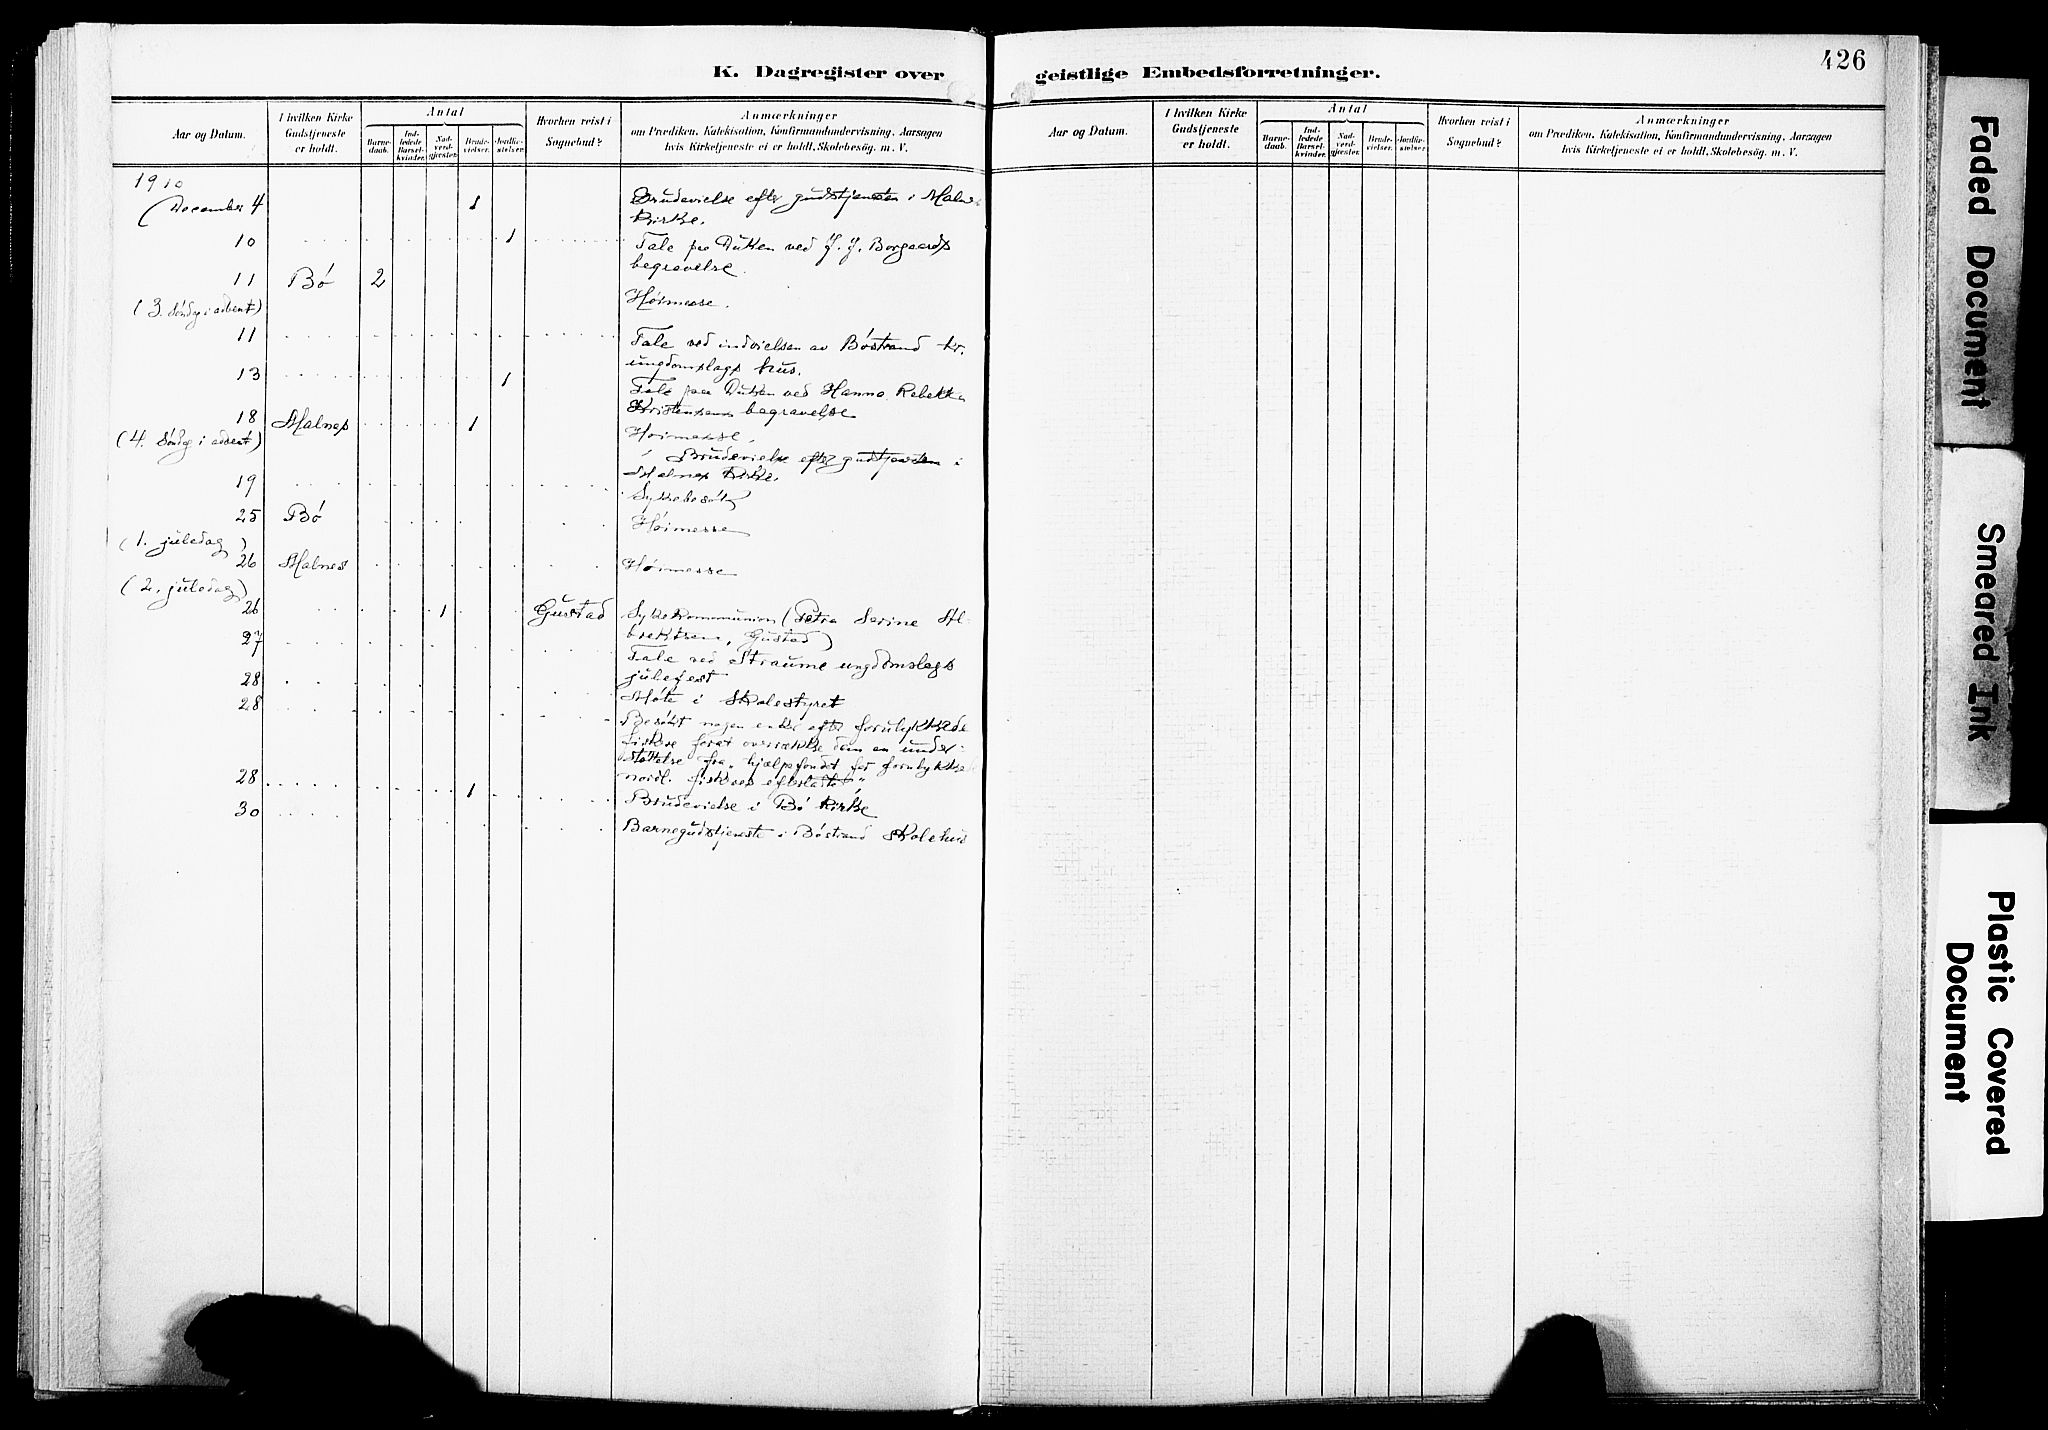 426
K. Dagregister over geistlige Embedsforretninger.
Aar og Datum.
I hvilken Kirke Gudstjeneste er holdt.
Antal
Barnedaab.
Indledede Barselkvinder.
Nadverdgjester.
Brudevielser.
Jordfæstelser.
Hvorhen reist i Sognebud?
Anmærkninger
om Prædiken, Katekisation, Konfirmandundervisning, Aarsagen
hvis Kirketjeneste ei er holdt, Skolebesøg. m. V.
Aar og Datum.
I hvilken Kirke Gudstjeneste er holdt.
Antal
Barnedaab.
Indledede Barselkvinder.
Nadverdgjester.
Brudevielser.
Jordfæstelser.
Hvorhen reist i Sognebud?
Anmærkninger
om Prædiken, Katekisation, Konfirmandundervisning, Aarsagen
hvis Kirketjeneste ei er holdt, Skolebesøg. m. V.
1910
(December 4 1 Brudevielse efter gudstjenesten i Malnes
kirke.
10 1 Tale paa Dukken ved J. J. Borgaards
begravelse.
11 Bó 2
(3. Søndag i advent) Høimesse.
11 Tale ved indvielsen av Bóstrand kr.
ungdomslags hus.
13 1 Tale paa Dukken ved Hanna Rebekka
Kristensens begravelse
18 Malnes 1 Høimesse.
(4. Søndag i advent) Brudevielse efter gudstjenesten i
Malnes kirke.
19 Sykebesók
25 Bó Høimesse
(1. juledag)
26 Malnes Høimesse
(2. juledag)
26 1 Gustad Sykekommunion (Petra Serine Al-
brektsen, Gustad)
27 Tale ved Straume ungdomslags
julefest
28 Móte i Skolestyret
28 Besókt nogen enker efter forulykkede
fiskere forat overrække dem en under-
støttelse fra "hjælpefondet for forulykkede
nordl. fiskeres efterlatte"
28 1 Brudevielse i Bó kirke
30 Barnegudstjeneste i Bóstrand Skolehus
Faded Document
Smeared Ink
Plastic Covered
Document